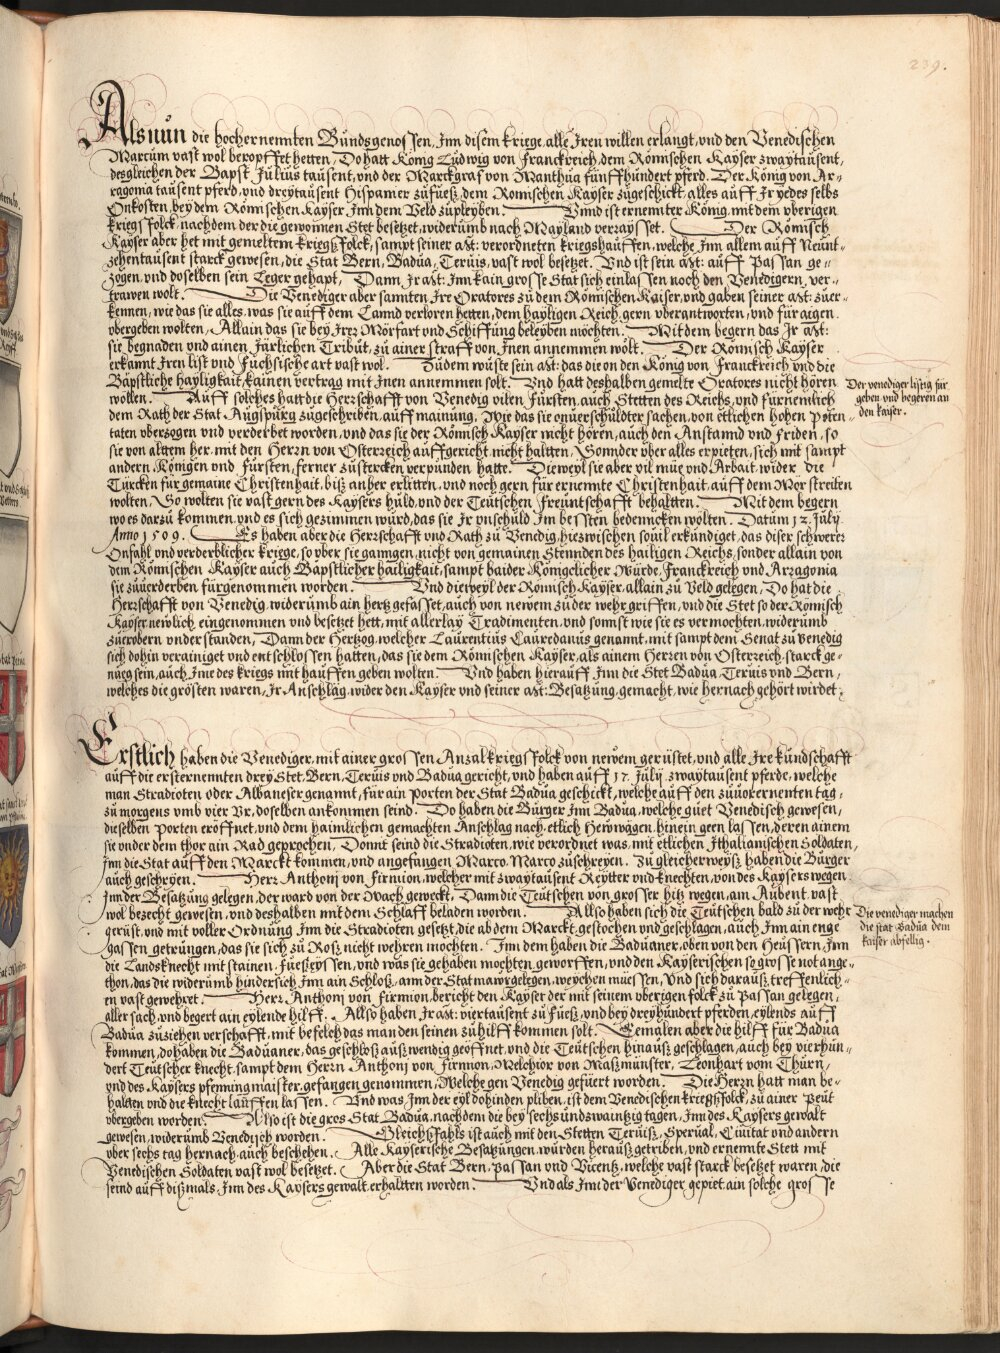 239.
Als nun die hochernennten Bundsgenossen, Inn disem kriege, alle Iren willen erlangt, vnd den Venedischen
Marcum vast wol beropffet hetten, Do hatt König Ludwig von Franckreich, dem Römischen Kayser zwaytausent,
desgleichen der Bapst Julius tausent, vnd der Marckgraf von Manthua fünffhundert pferd. Der König von Ar-
ragonia tausent pferd, vnd dreytausent Hispanier zufuesz, dem Romischen Kayser zugeschickt, alles auff Ir yedes selbs
Onkosten, bey dem Römischen Kayser Inn dem Veld zupleyben. Vnnd ist ernennter König, mit dem vberigen
kriegsfolck, nachdem der die gewonnen Stet besetzet, widerumb nach Mayland verraysset. Der Römisch
Kayser aber het mit gemeltem kriegsfolck, sampt seiner Mt: verordneten kriegshauffen, welche Inn allem auff Neünt-
zehentausent starck gewesen, die Stat Bern, Badua, Teruis, vast wol besetzet. Vnd ist sein Mt: auff Passan ge-
zogen, vnd doselben sein Leger gehapt, Dann Ir Mt: Inn kain grosse Stat sich einlassen noch den Venedigern, ver-
trawen wolt. Die Venediger aber sannten Ire Oratores zu dem Römischen Kaiser, vnd gaben seiner Mt: zuer-
kennen, wie das sie alles, was sie auff dem Lannd verloren hetten, dem hayligen Reich, gern vberantworten, vnd für aigen
vbergeben wolten, Allain das sie bey Irer Mörfart vnd Schiffung beleyben möchten. Mit dem begern das Ir Mt:
sie begnaden vnd ainen Järlichen Tribut, zu ainer straff von Inen annemmen wölt. Der Römisch Kayser
erkannt Iren list vnd Füchsische art vast wol. Zudem wuste sein Mt: das die on den König von Franckreich vnd die
Bäpstliche hayligkait, kainen vertrag mit Inen annemmen solt. Vnd hatt deshalben gemelte Oratores nicht hören
wöllen. Auff solches hatt die Herrschafft von Venedig vilen Fürsten, auch Stetten des Reichs, vnd fürnemlich
dem Rath der Stat Augspurg zugeschriben, auff mainung, Wie das sie onuerschuldter sachen, von etlichen hohen Poten-
taten vberzogen vnd verderbet worden, vnd das sie der Römisch Kayser nicht hören, auch den Anstannd vnd friden, so
sie von alttem her, mit den Herrn von Osterreich auffgericht nicht haltten, Sonnder vber alles erpieten, sich mit sampt
andern Königen vnd Fürsten, ferner zustercken verpunden hatte. Dieweyl sie aber vil müe vnd Arbait wider die
Türcken für gemaine Christenhait, bisz anher erlitten, vnd noch gern für ernennte Christenhait, auff dem Mör streiten
wolten, So wolten sie vast gern des Kaysers huld, vnd der Teütschen freuntschafft behaltten. Mit dem begern
wo es darzu kommen, vnd es sich gezimmen würd, das sie Ir vnschuld Im bessten bedenncken wölten. Datum 12. Julij.
Anno 1509. Es haben aber die Herrschafft vnd Rath zu Venedig, hiezwischen souil erkundiget, das diser schwerer
Onfahl vnd verderblicher kriege, so vber sie ganngen, nicht von gemainen Stennden des hailigen Reichs, sonder allain von
dem Römischen Kayser auch Bäpstlicher hailigkait, sampt baider Königclicher Würde, Franckreich vnd Arragonia
sie zuuerderben fürgenommen worden. Vnd dieweyl der Römisch Kayser, allain zu Veld gelegen, Do hat die
Herrschafft von Venedig, widerumb ain hertz gefasset, auch von newem zu der wehr griffen, vnd die Stet so der Römisch
Kayser newlich eingenommen vnd besetzet hett, mit allerlay Tradimenten, vnd sonnst wie sie es vermochten, widerumb
zuerobern vnderstanden, Dann der Hertzog, welcher Laurentius Lauredanus genannt, mit sampt dem Senat zu Venedig
sich dohin verainiget vnd entschlossen hatten, das sie dem Römischen Kayser, als ainem Herren von Osterreich, starck ge-
nueg sein, auch Ime des kriegs mit hauffen geben wolten. Vnd haben hierauff Inn die Stet Badua, Teruis vnd Bern,
welches die grösten waren, Ir Anschläg, wider den Kayser vnd seiner Mt: Besatzung, gemacht, wie hernach gehört wirdet.
Der venediger listig für
geben vnd begeren an
den kaiser.
Erstlich haben die Venediger, mit ainer grossen Anzal kriegsfolck von newem gerüstet, vnd alle Ire kundschafft
auff die ersternennten drey Stet, Bern, Teruis vnd Badua gericht, vnd haben auff 17. Julij zwaytausent pferde, welche
man Stradioten oder Albaneser genannt, für ain Porten der Stat Badua geschickt, welche auff den zuuorernenten tag,
zu morgens vmb vier Vr, doselben ankommen seind. Do haben die Burger Inn Badua, welche guet Venedisch gewesen,
dieselben Porten eröffnet, vnd dem haimlichen gemachten Anschlag nach, etlich Hewwägen, hinein geen lassen, deren ainem
sie vnder dem thor ain Rad geprochen, Domit seind die Stradioten, wie verordnet was, mit etlichen Ithalianischen Soldaten,
Inn die Stat auff den Marckt kommen, vnd angefangen Marco, Marco zuschreyen. Zu gleicherweysz haben die Burger
auch geschryen. Herr Anthonj von Firmion, welcher mit zwaytausent Reytter vnd knechten, von des Kaysers wegen
Inn der Besatzung gelegen, der ward von der Wach geweckt, Dann die Teütschen von grosser hitz wegen, am Aubent vast
wol bezecht gewesen, vnd deshalben mit dem Schlaff beladen worden. Also haben sich die Teütschen bald zu der wehr
gerüst, vnd mit voller Ordnung Inn die Stradioten gesetzt, die ab dem Marckt, gestochen vnd geschlagen, auch Inn ain enge
gassen getrungen, das sie sich zu Rosz nicht wehren mochten. Inn dem haben die Baduaner, oben von den Heüssern, Inn
die Landsknecht mit stainen, fueszeyssen, vnd was sie gehaben mochten, geworffen, vnd den Kayserischen so grosse not ange-
thon, das die widerumb hindersich Inn ain Schlosz, ann der Statmawr gelegen, weychen muessen, Vnd sich daraus, treffenlich-
en vast gewehret. Herr Anthonj von Firmion, bericht den Kayser der mit seinem vberigen folck, zu Passan gelegen,
aller sach, vnd begert ain eylende hilff. Also haben Ir Mt: viertausent zu Fuesz, vnd bey dreyhundert pferden, eylends auff
Badua zuziehen verschafft, mit befelch das man den seinen zuhilff kommen solt. Eemalen aber die hilff für Badua
kommen, do haben die Baduaner, das geschlosz auszwendig geöffnet, vnd die Teütschen hinausz geschlagen, auch bey vierhun-
dert Teütscher knecht, sampt dem Herrn Anthonj von Firmion, Melchior von Maszmünster, Leonhart vom Thurn,
vnd des Kaysers pfenningmaister, gefangen genommen, Welche gen Venedig gefüert worden. Die Herrn hatt man be-
haltten vnd die knecht lauffen lassen. Vnd was Inn der eyl dohinden pliben, ist dem Venedischen kriegsfolck, zu ainer Peüt
vbergeben worden. Also ist die gros Stat Badua, nachdem die bey sechsundzwaintzig tagen, Inn des Kaysers gewalt
gewesen, widerumb Venedisch worden. Gleichsfahls ist auch mit den Stetten Teruisz, Speruał, Ciuitat vnd andern
vber sechs tag hernach, auch beschehen. Alle Kayserische Besatzungen, wurden herausz getriben, vnd ernennte Stett mit
Venedischen Soldaten vast wol besetzet. Aber die Stat Bern, Passan vnd Vicentz, welche vast starck besetzet waren, die
seind auff diszmals, Inn des Kaysers gewalt, erhaltten worden. Vnd als Inn der Venediger, gepiet, ain solche grosse
Die venediger machen
die stat Badua dem
kaiser abfellig.